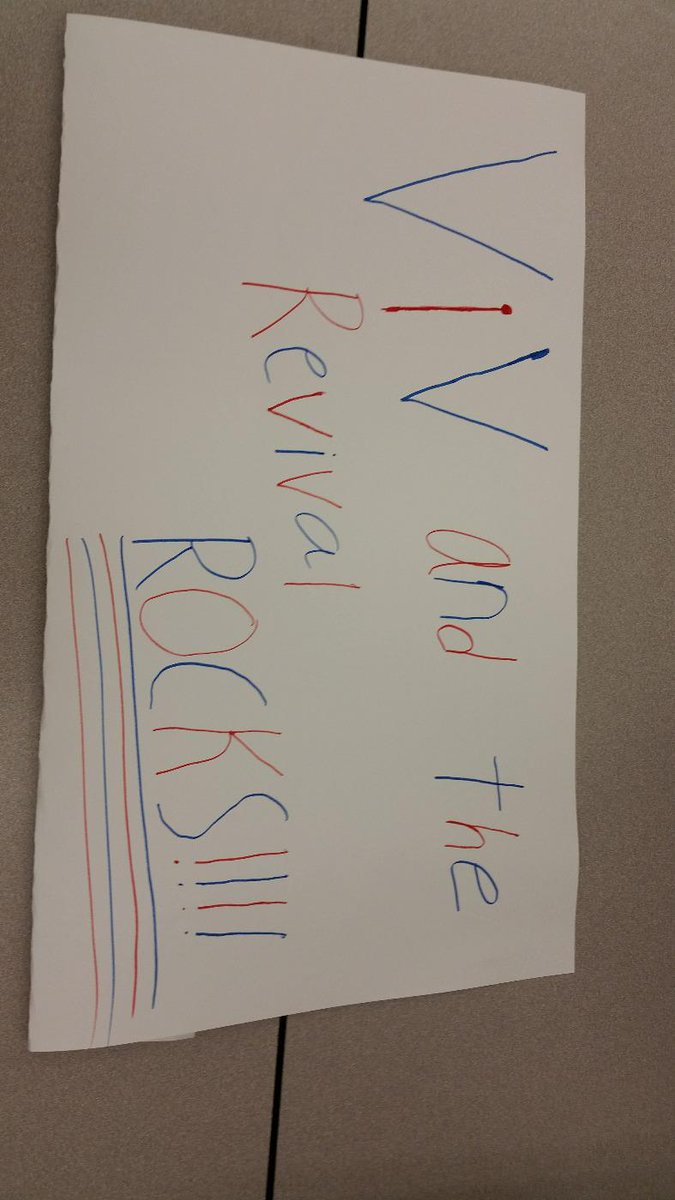 ViV and the
Revival
ROCKS!!!!